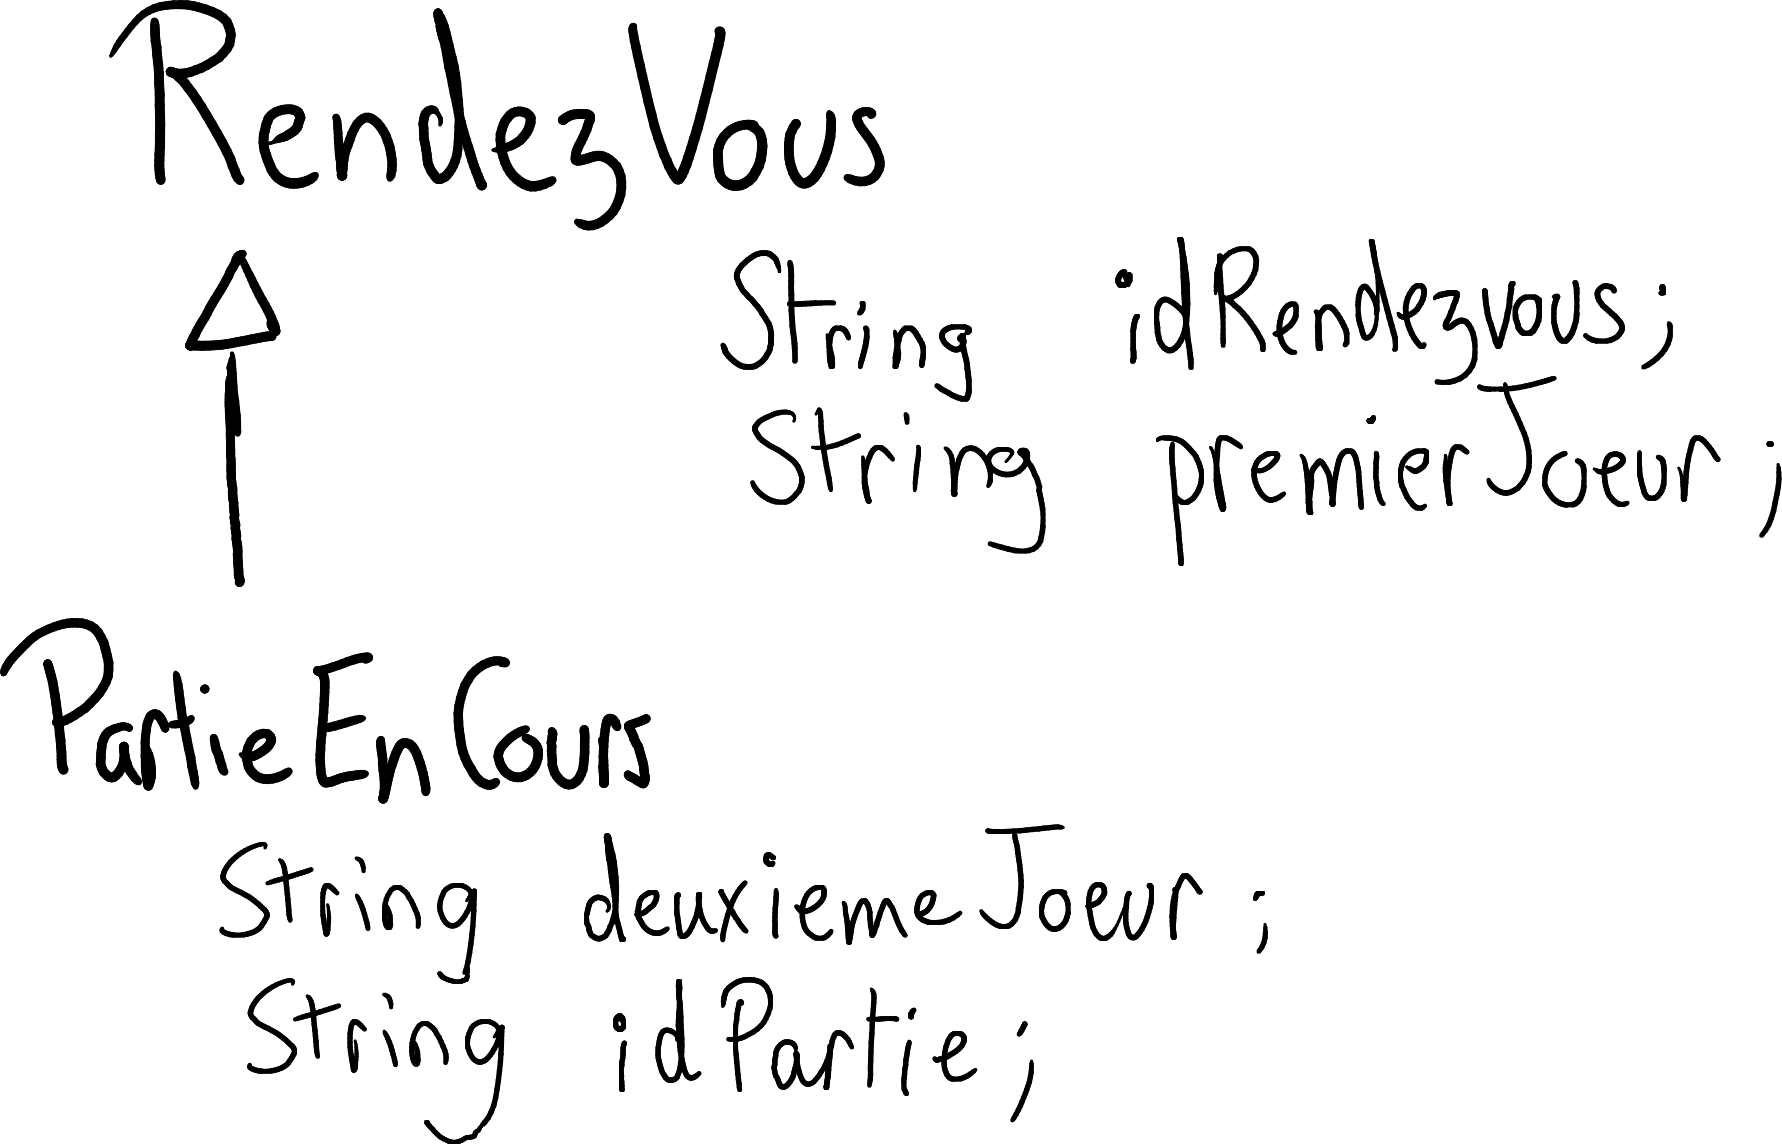 RendezVous
String idRendezvous;
String premierJoeur;
PartieEnCours
String deuxiemeJoeur;
String idPartie;